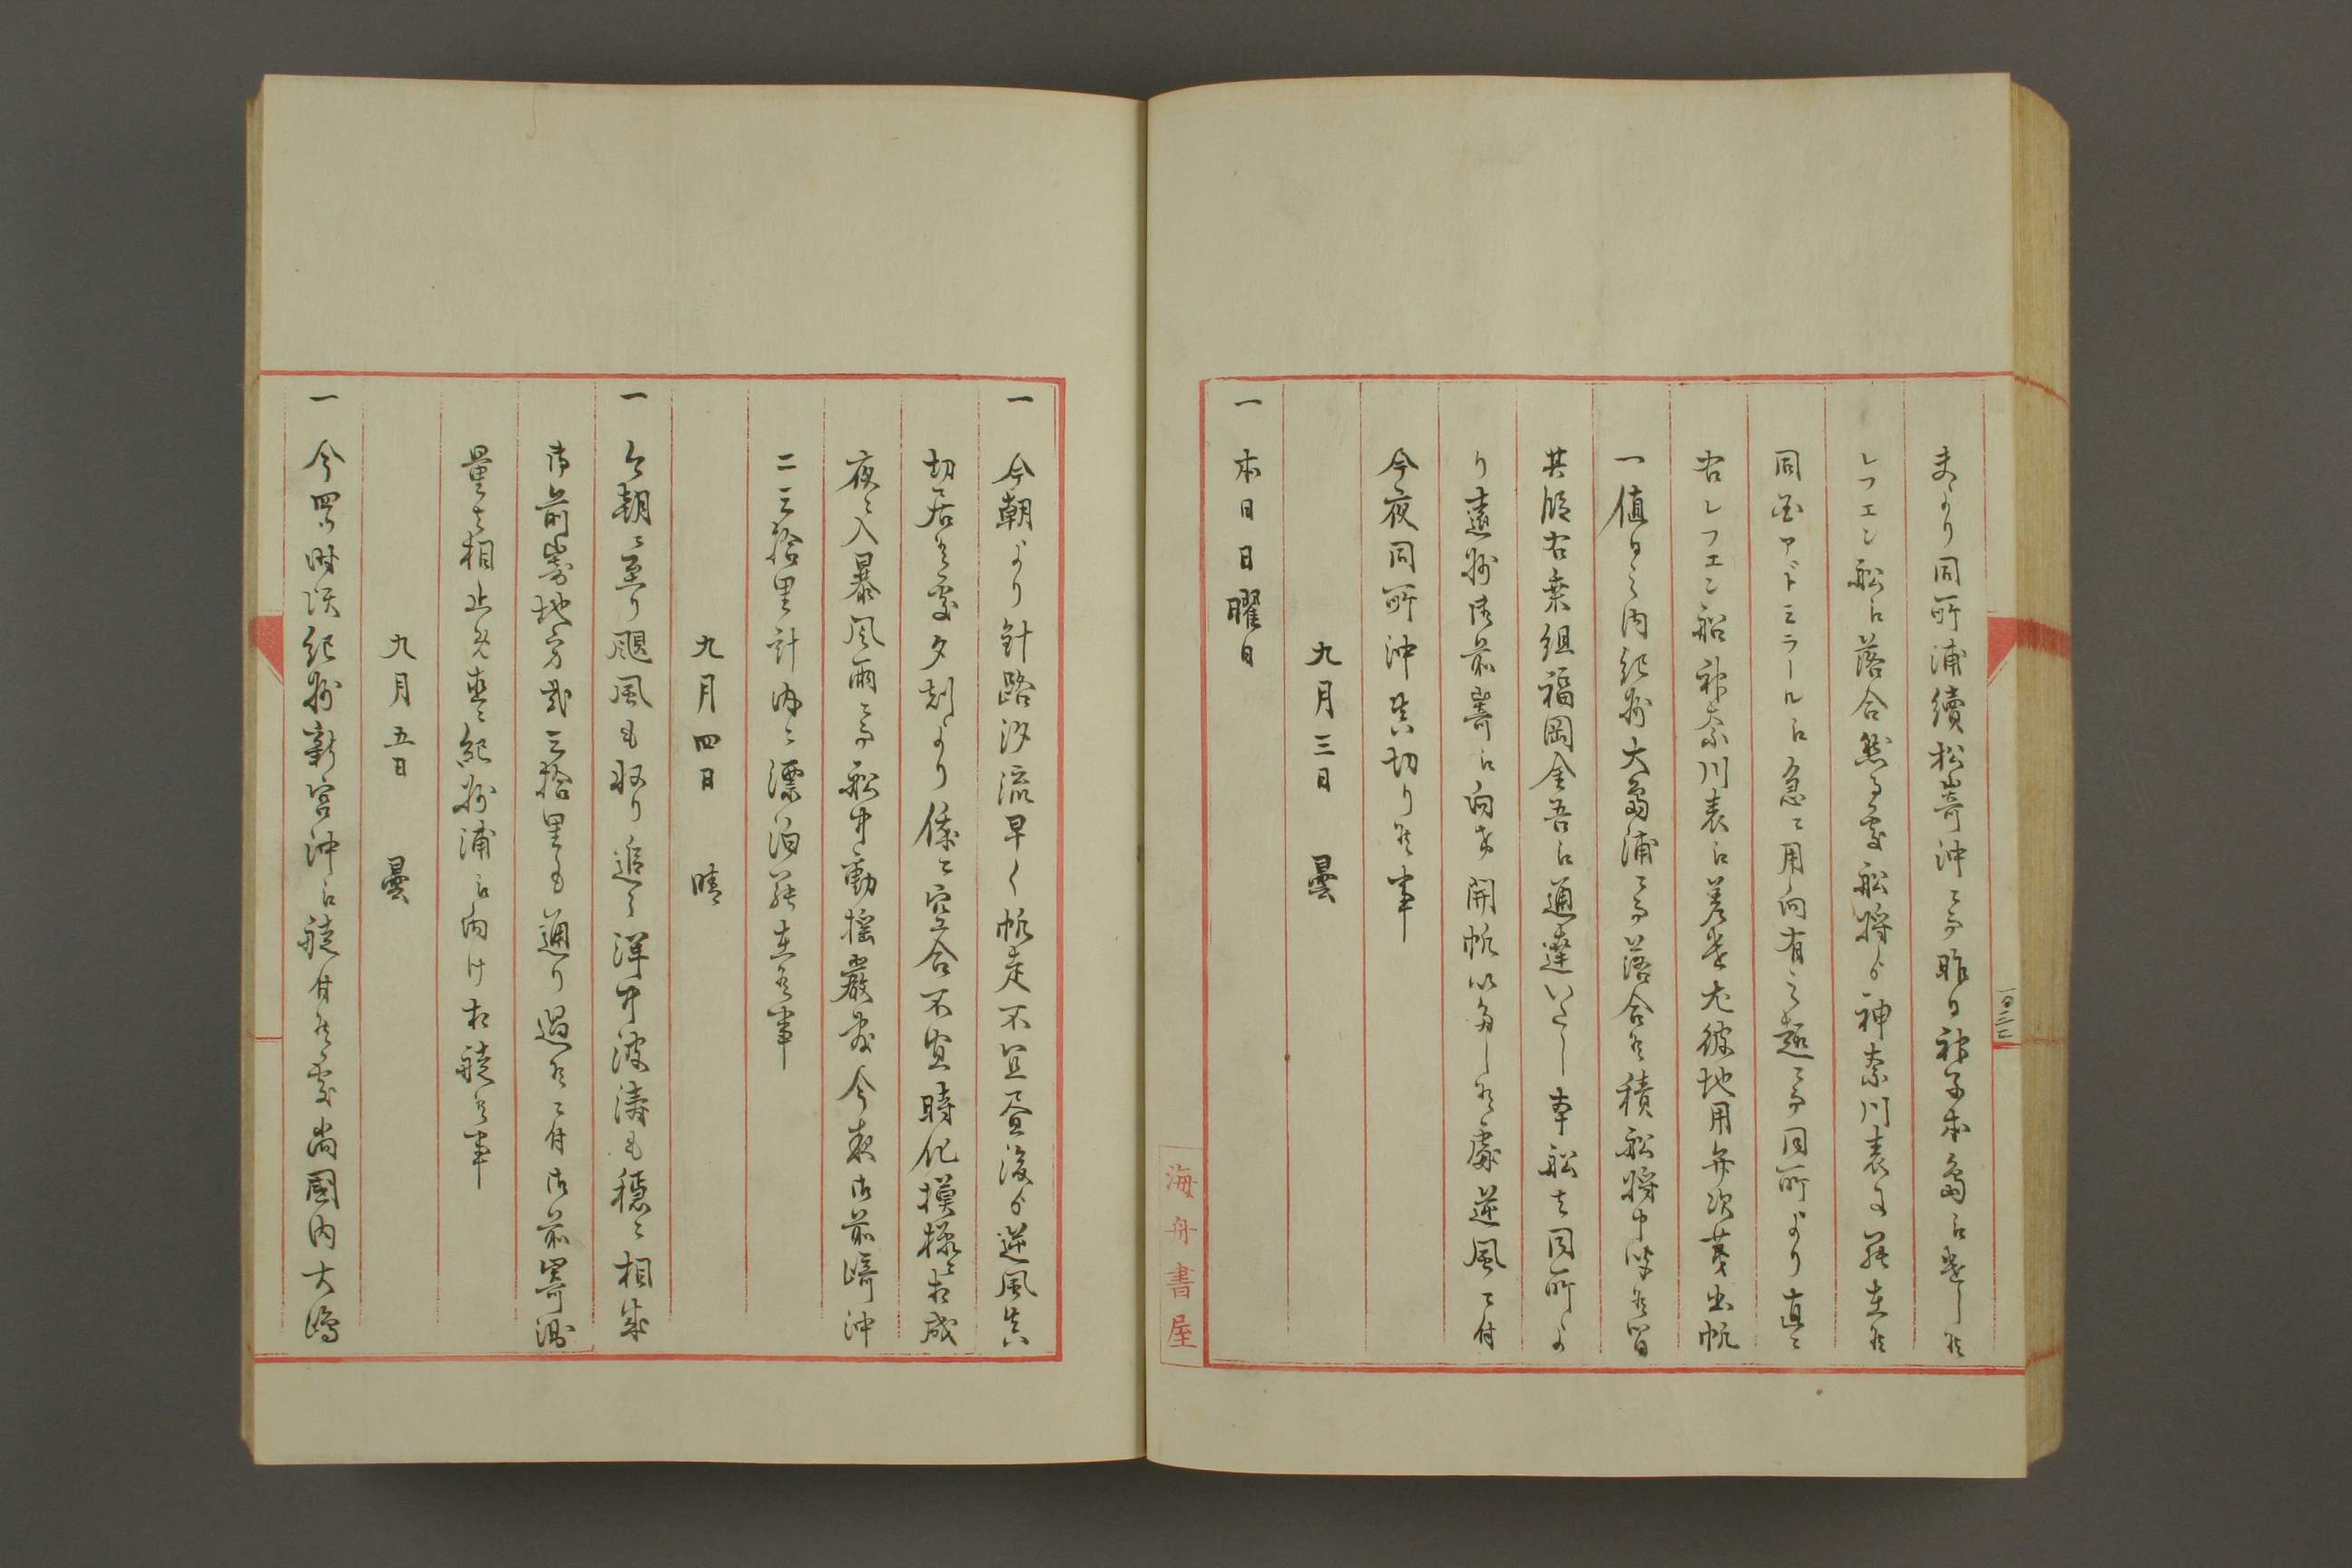 夫より同所浦續松嵜沖ニ而昨日神子本島江遣し候
レフエン船江落合然る處船将ゟ神奈川表に罷在候
同国アドミラール江急ニ用向有之趣ニ而同所より直ニ
右レフエン船神奈川表江差遣尤彼地用弁次第出帆
一値日之内紀州大島浦ニ而落合候積船将申談候間
其段右乗組福岡金吾江通達いたし本船者同所よ
り遠州御前嵜江向ケ開帆以多し候處逆風ニ付
今夜同所沖間切り候事
九月三日 曇
一 本日日曜日
一〇三二
海舟書屋
一 今朝より針路汐流早く帆走不宜昼後ゟ逆風間
切居候處夕刻より俄ニ空合不宜時化模様ニ相成
夜ニ入暴風雨ニ而船中動揺嚴敷今夜御前﨑沖
二三拾里計内ニ漂泊罷在候事
九月四日 晴
一 今朝ニ至り颶風も収り追々洋中波濤も穏ニ相成
御前嵜地方貮三拾里も通り過候ニ付御前嵜測
量者相止メ直ニ紀州浦江向け相䑺候事
九月五日 曇
一 今四時頃紀州新宮沖江䑺付候處尚國内大嶋